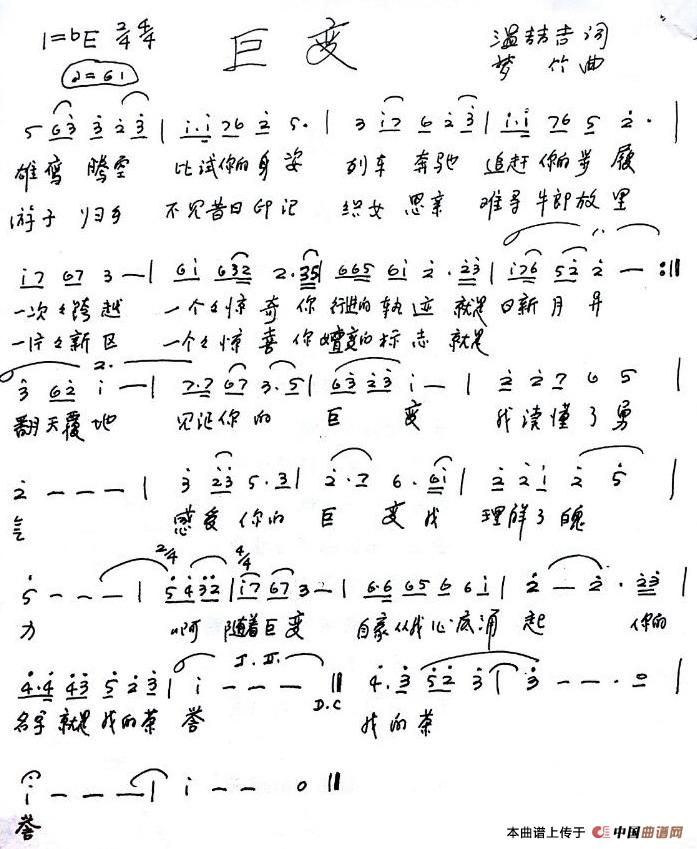 1=bE 2/4 4/4 巨变 温喆吉 词
♩=61 梦竹 曲
5 6 3 3 2 3 | 1·1 7 6 2 5· | 3 1 7 6 2 3 | 1·1 7 6 5 2· |
雄鹰 腾空 比试你的身姿 列车 奔驰 追赶你的步履
游子 归乡 不见昔日印记 织女 思亲 难寻牛郎故里
1 7 6 7 3 — | 6 1 6 3 2 2·3 5 | 6 6 5 6 1 2·2 3 | 1 7 6 5 2 2 — :||
一次次跨越 一个个惊奇 你行进的轨迹 就是日新月异
一片片新区 一个个惊喜 你嬗变的标志 就是
2.
3 6 2 1 — | 7·7 6 7 3·5 | 6 3 2 3 1 — | 2 2 7 6 5 |
翻天覆地 见证你的 巨 变 我读懂了勇
2 — — — | 3 2 3 5·3 | 2·7 6·6 1 | 2 2 1 2 5 |
气 感受你的 巨 变我 理解了魄
2/4 4/4
5 — — — | 5 4 3 2 | 1 7 6 7 3 — | 6·6 6 5 6 6 1 | 2 — 2·2 3 |
力 啊 随着巨变 自豪从我心底涌 起 你的
I. II.
4·4 4 3 5 2 3 | 1 — — — || 4·3 5 2 3 | 3 — — ·0 |
D.C
名字就是我的荣 誉 我的荣
1 — — — | 1 — — 0 ||
誉
本曲谱上传于 中国曲谱网